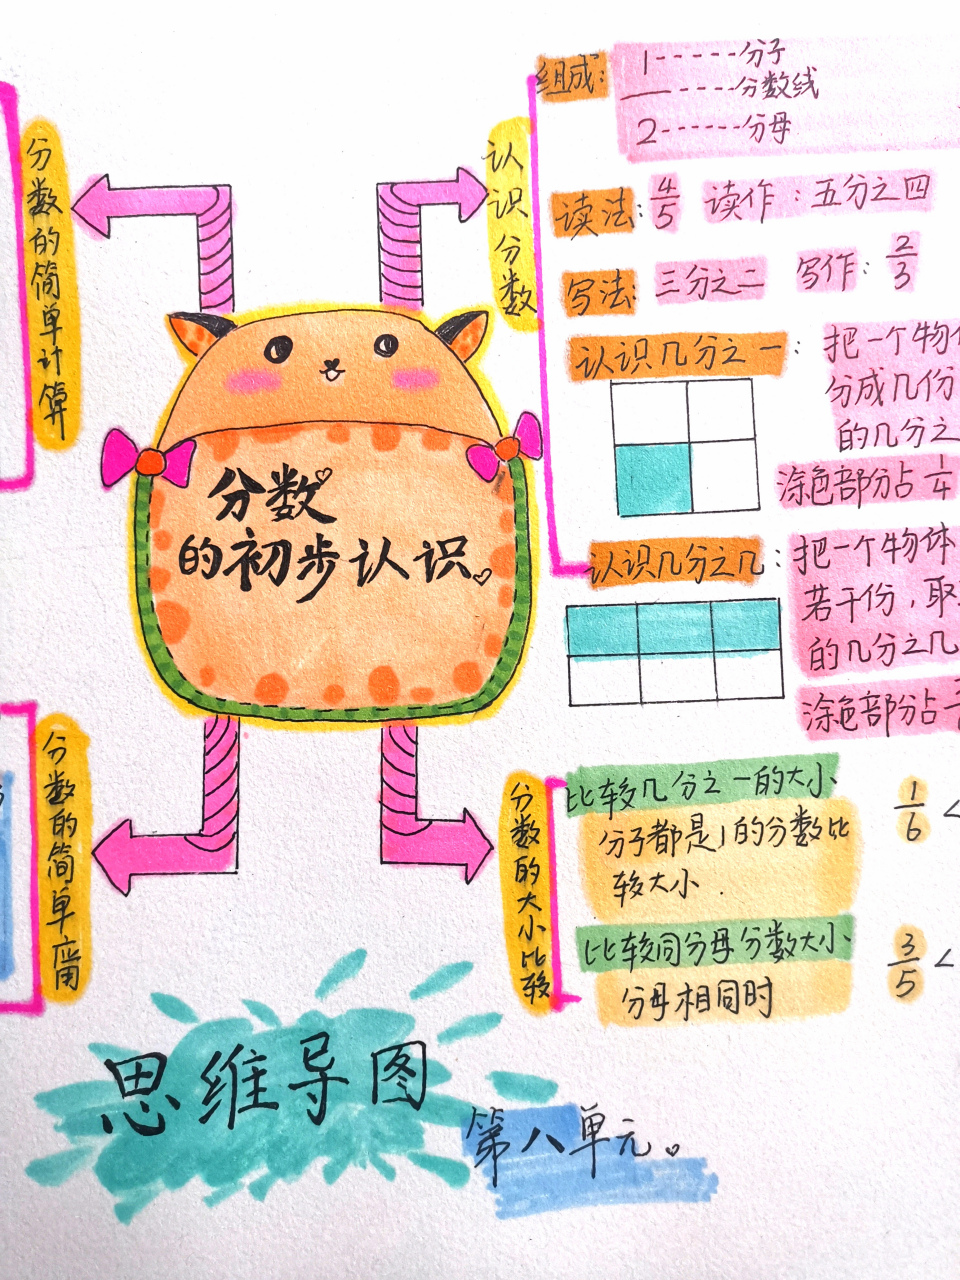 分数的初步认识。
认识分数
组成:
1------分子
-----分数线
2------分母
读法: 4/5 读作: 五分之四
写法: 三分之二 写作: 2/3
认识几分之一:
把一个物
分成几份
的几分之
涂色部分占 1/4
认识几分之几:
把一个物体
若干份,取
的几分之几
涂色部分占
分数的大小比较
比较几分之一的大小
分子都是1的分数比
较大小.
1/6 <
比较同分母分数大小
分母相同时
3/5 <
分数的简单计算
分数的简单应用
思维导图
第八单元。